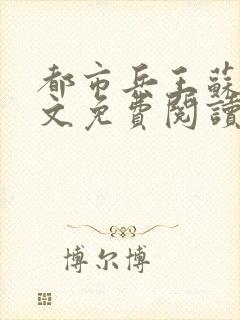 都市兵王蘇
文免費閱讀
博尔博